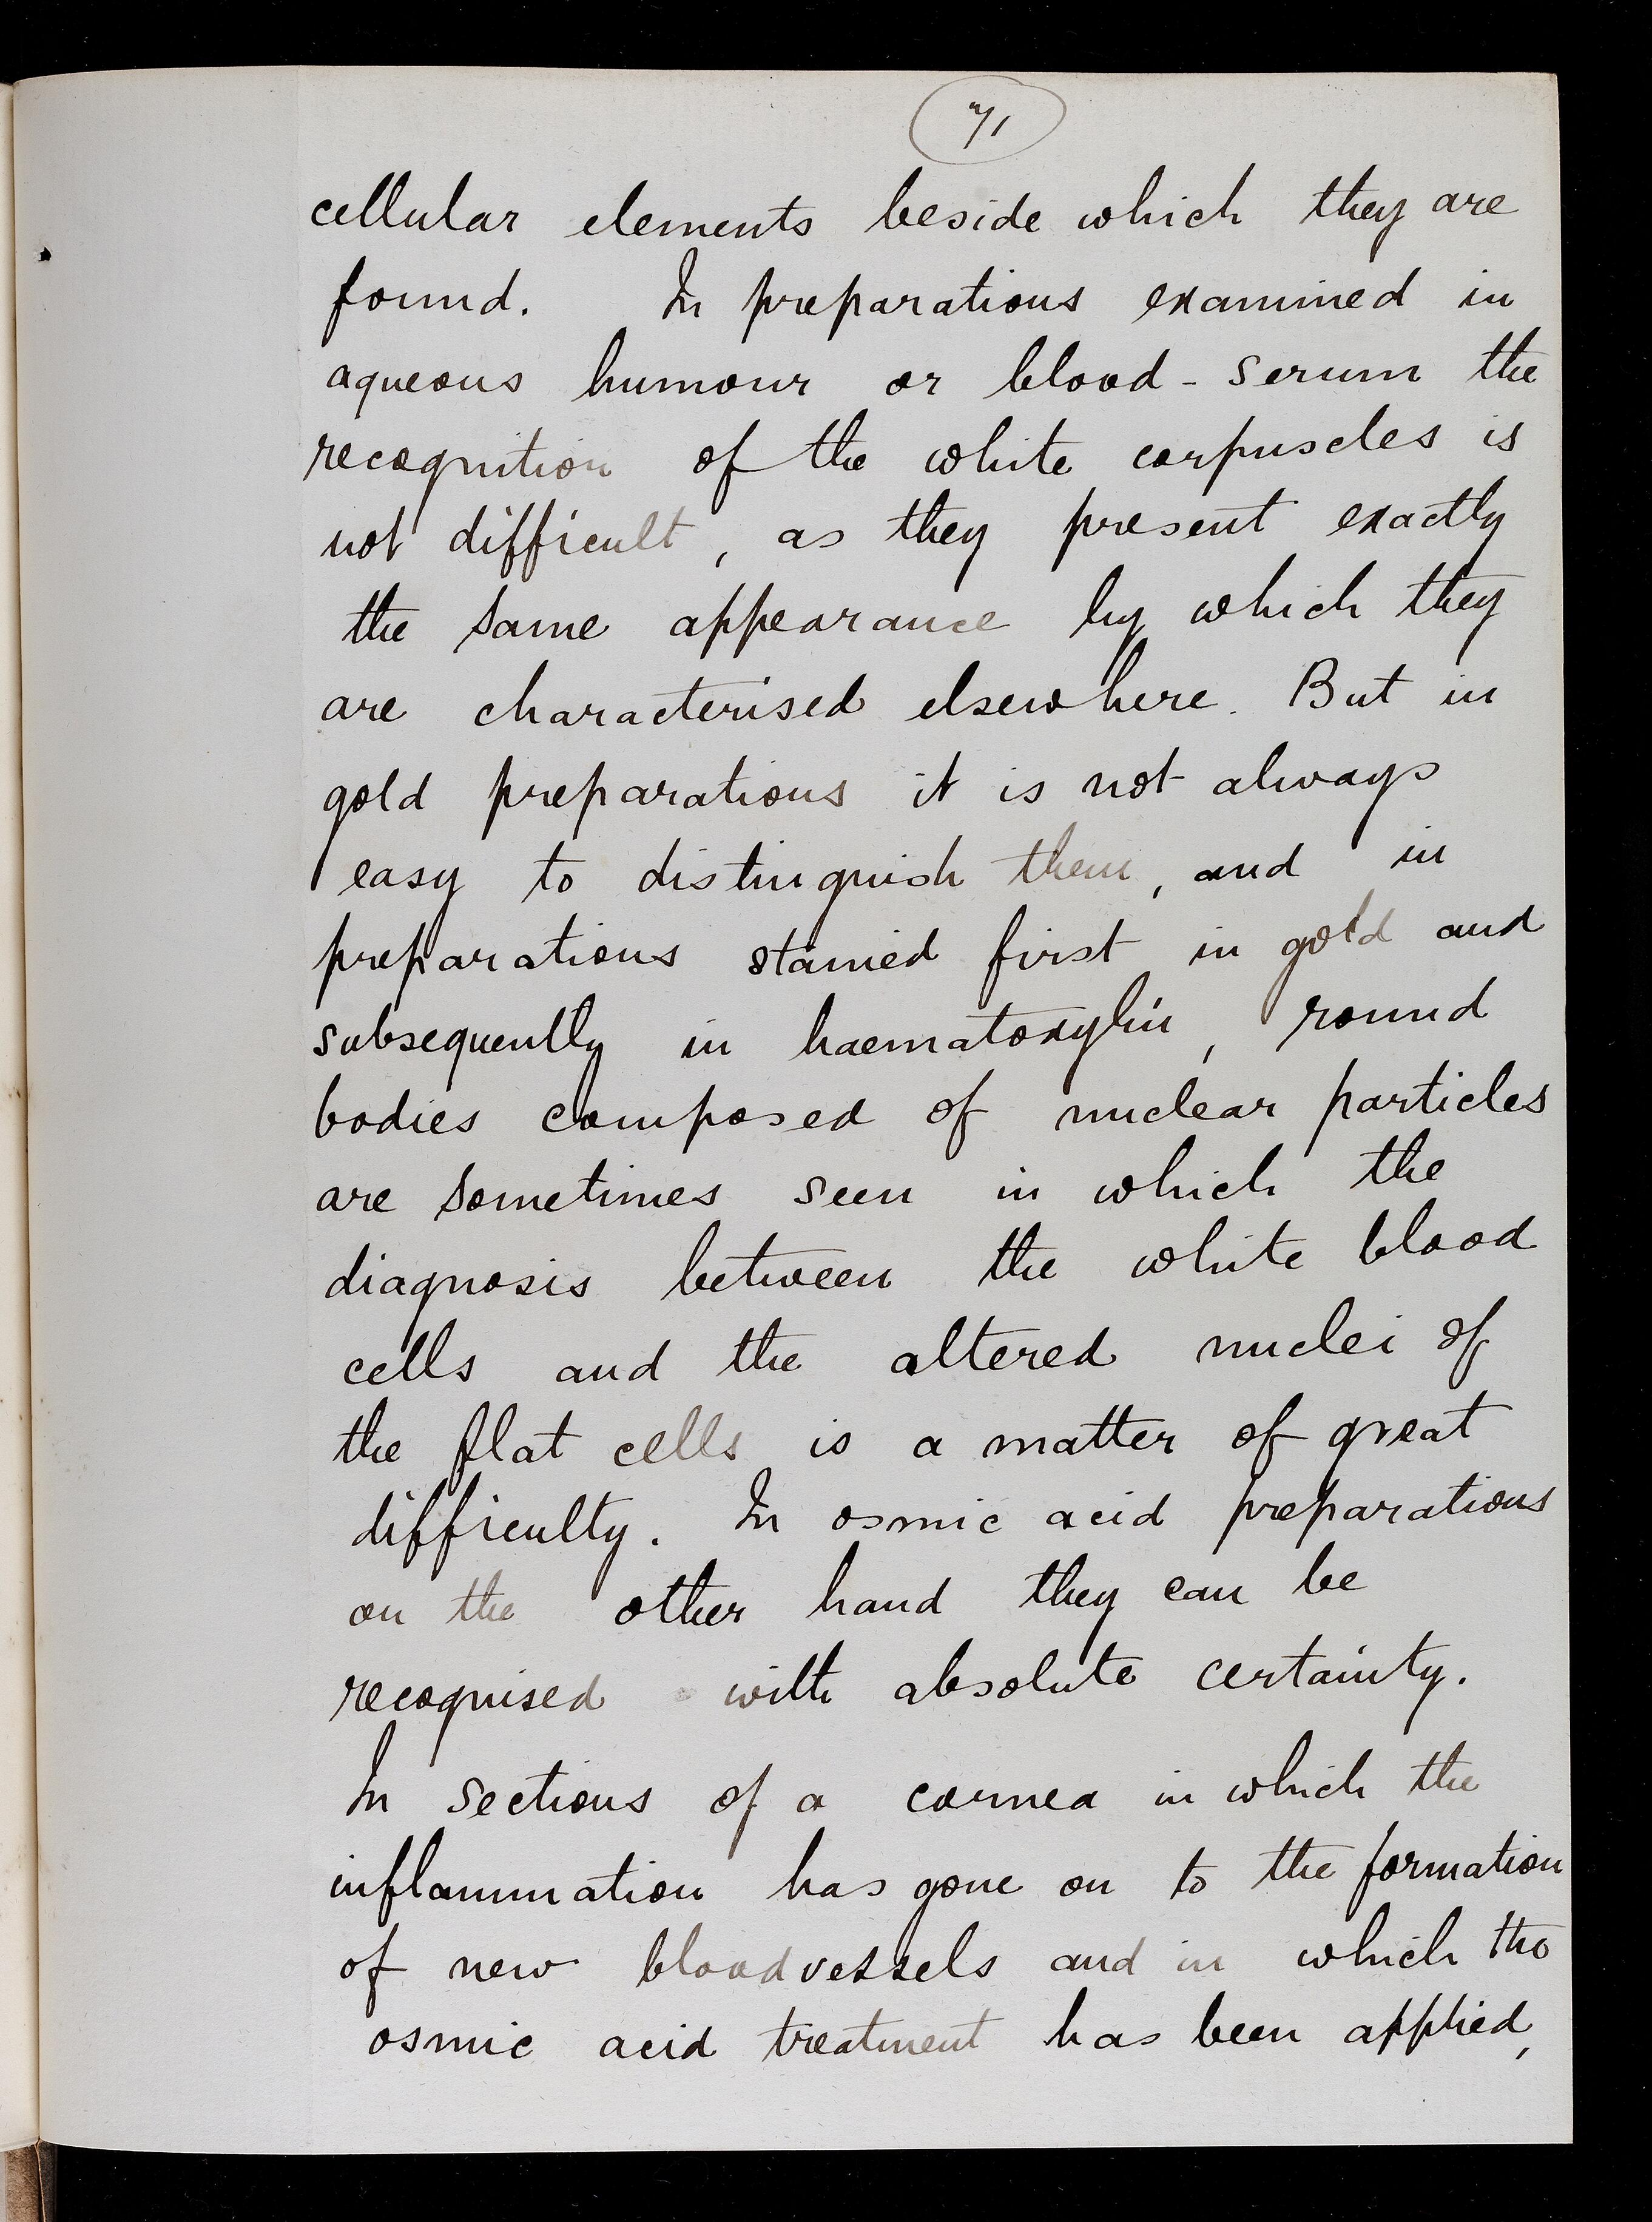 71
cellular elements beside which they are
found. In preparations examined in
aqueous humour or blood-serum the
recognition of the white corpuscles is
not difficult, as they present exactly
the same appearance by which they
are characterised elsewhere. But in
gold preparations it is not always
easy to distinguish them, and in
preparations stained first in gold and
subsequently in haematoxylin, round
bodies composed of nuclear particles
are sometimes seen in which the
diagnosis between the white blood
cells and the altered nuclei of
the flat cells is a matter of great
difficulty. In osmic acid preparations
on the other hand they can be
recognised with absolute certainty.
In sections of a cornea in which the
inflammation has gone on to the formation
of new bloodvessels and in which the
osmic acid treatment has been applied,